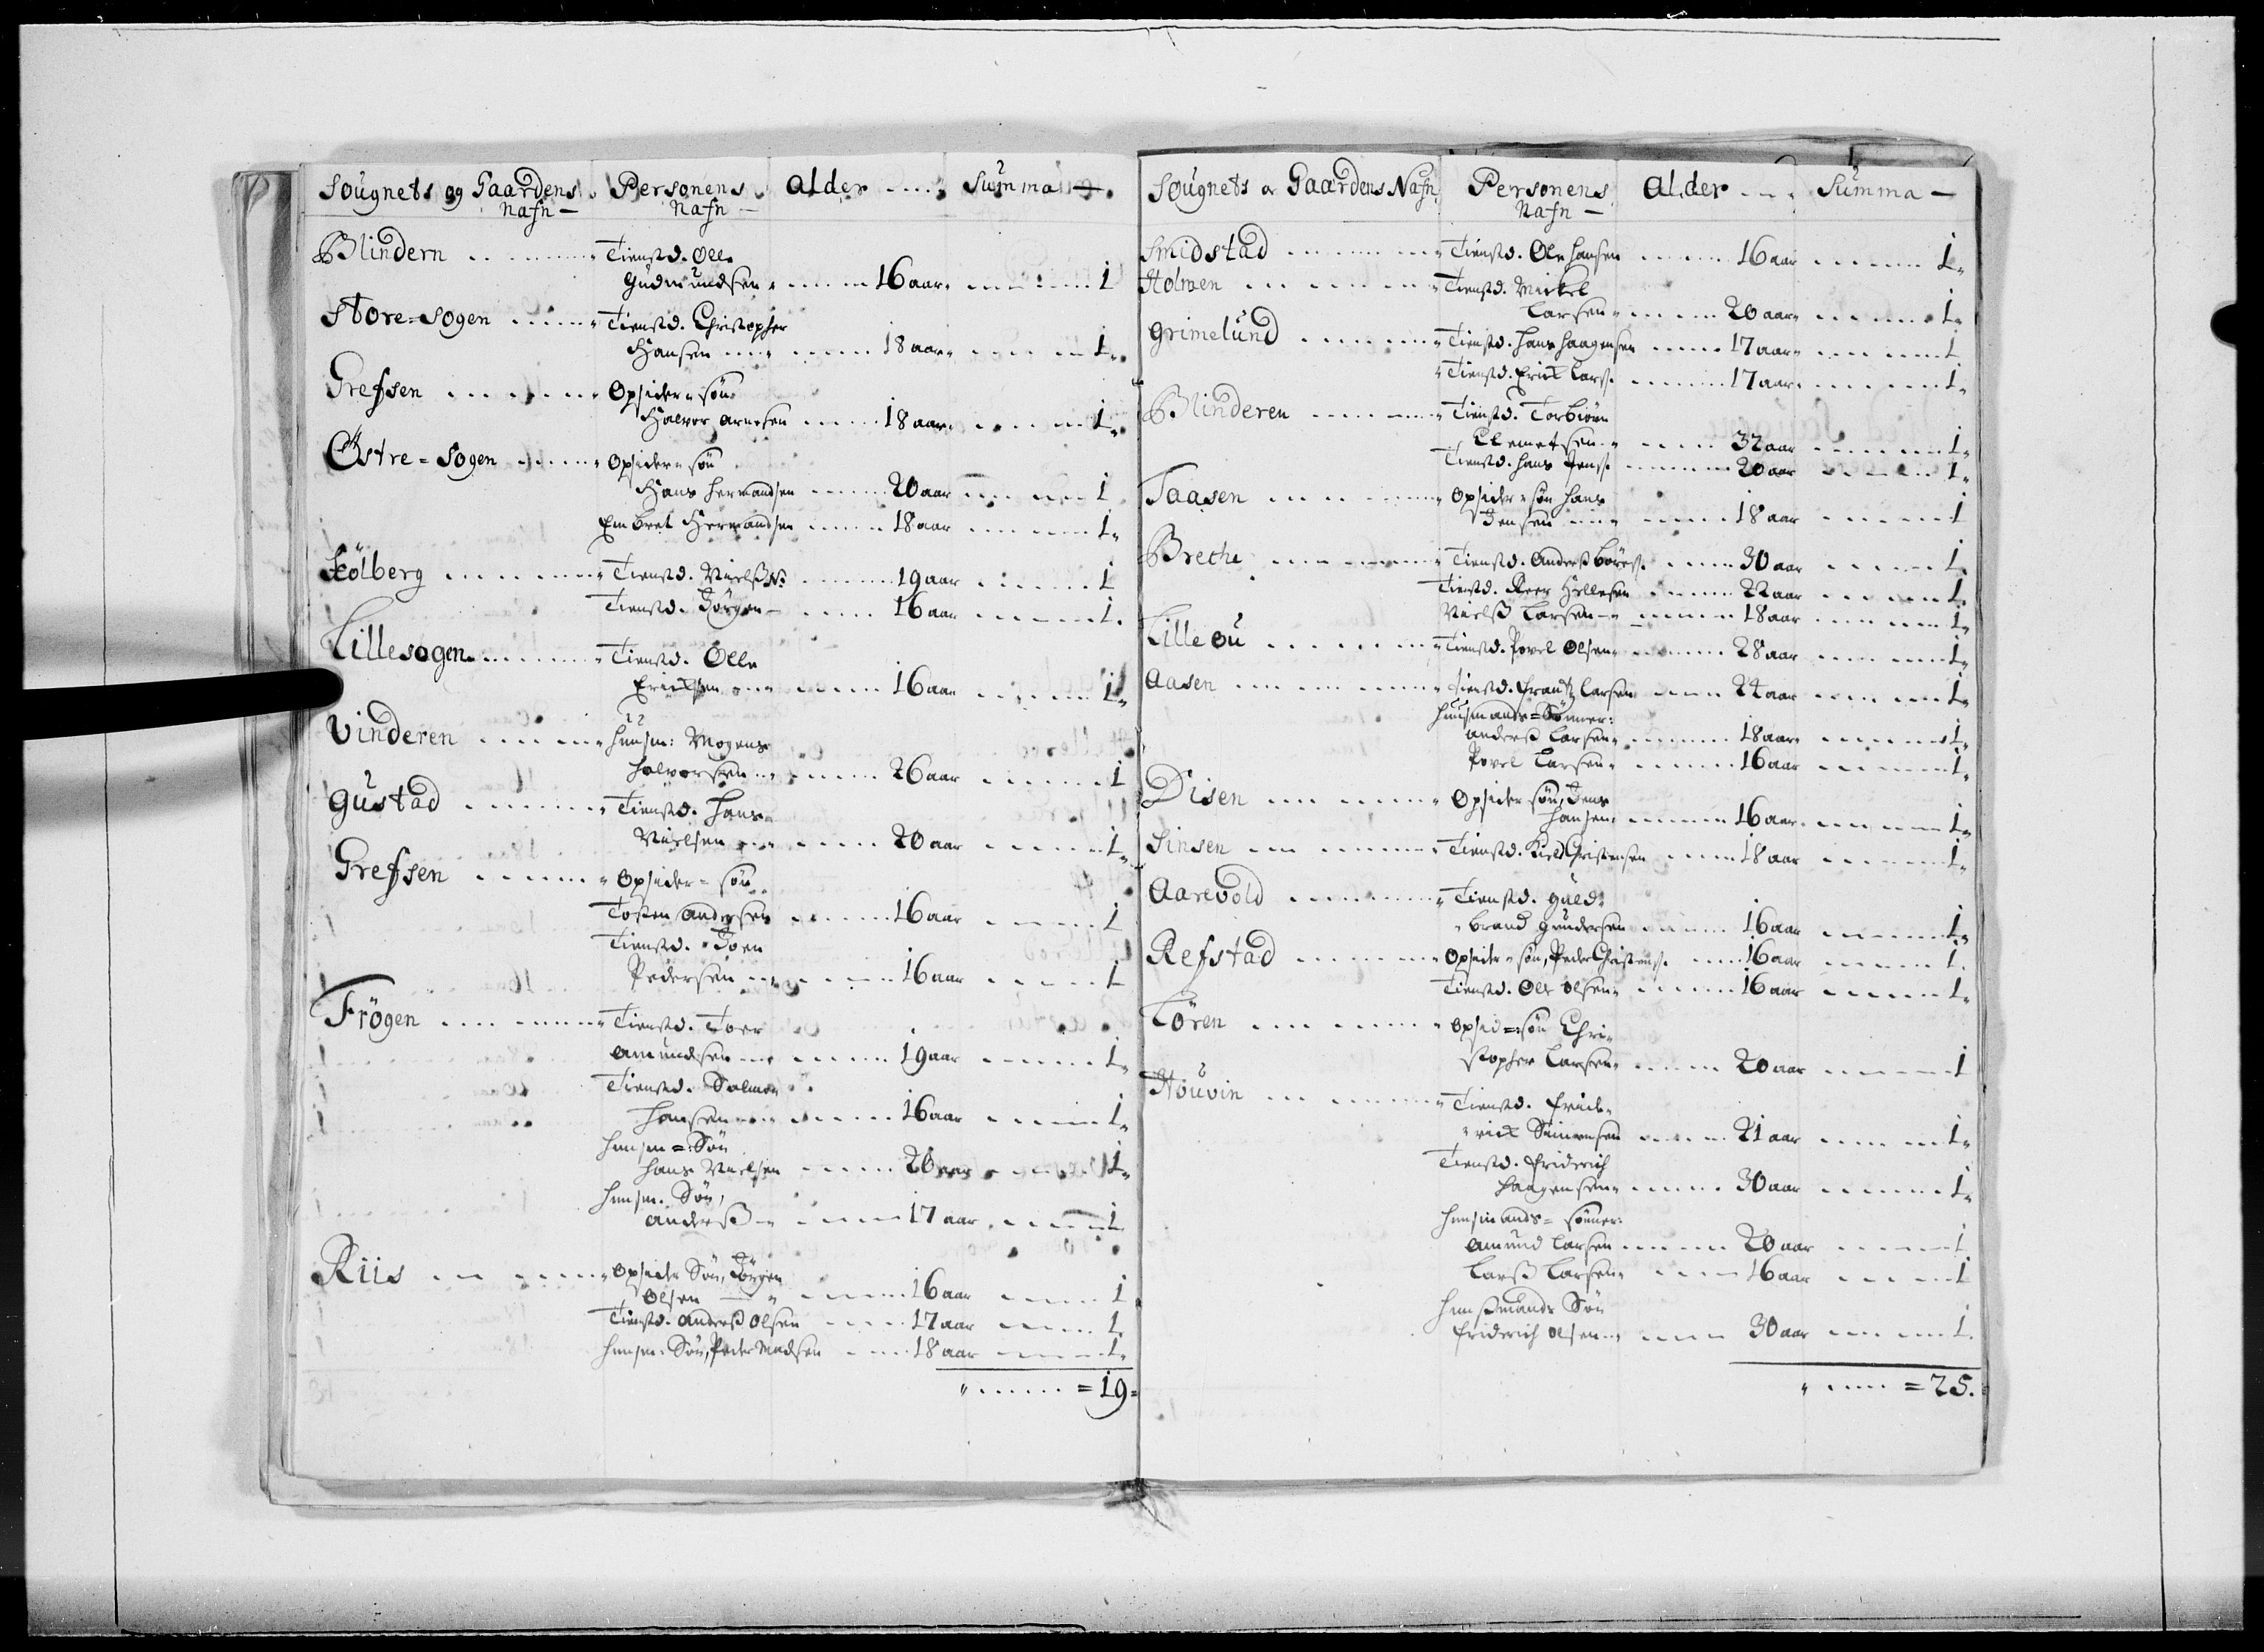 Sougnets og Gaardens Personens Alder .... Summa —
Nafn — Nafn —
Blindern .. ........ Tienstd. Olle
Gudmundsen ........ 16 aar ........ 1
Store=Sogen ...... Tienstd. Christopher
Hansen ........ 18 aar ........ 1
Grefsen ........ Opsider=søn
Halvor Arnesen ...... 18 aar ........ 1
Östre=Sogen ...... Opsider=søn
Hans Hermandsen ...... 20 aar ........ 1
Embret Hermandsen ...... 18 aar ........ 1
Kölberg ........ Tienstd. Nielß N: ........ 19 aar ........ 1
Tienstd. Jörgen — ...... 16 aar ........ 1
Lillesogen ........ Tienstd. Olle
Erichsen ........ 16 aar ........ 1
Vinderen ........ Huusm: Mogens
Halvorsen ........ 26 aar ........ 1
Gustad ........ Tienstd. Hans
Nielsen ........ 20 aar ........ 1
Grefsen ........ Opsider=søn
Tosten Andersen ...... 16 aar ........ 1
Tienstd. Joen
Pedersen ........ 16 aar ........ 1
Frögen ........ Tienstd. Toer
Amundsen ........ 19 aar ........ 1
Tienstd. Salmon
Hansen ........ 16 aar ........ 1
Huusm=Søn
Hans Nielsen ...... 20 aar ........ 1
Huusm. Søn,
Anderß ........ 17 aar ........ 1
Riis ........ Opsider Søn, Jörgen
Olsen ........ 16 aar ........ 1
Tienstd. Anderß Olsen ...... 17 aar ........ 1
Huusm. Søn, Peder Madsen ...... 18 aar ........ 1
........ = 19 =
Sougnets og Gaardens Nafn Personens Alder .... Summa —
Nafn —
Smidstad ........ Tienstd. Ole Hansen ...... 16 aar ........ 1
Holmen ........ Tienstd. Mickel
Larsen ........ 20 aar ........ 1
Grimelund ........ Tienstd. Hans Haagensen ...... 17 aar ........ 1
Tienstd. Erick Larss. ........ 17 aar ........ 1
Blinderen ........ Tienstd. Torbiörn
Clemetsen ........ 32 aar ........ 1
Tienstd. Hans Jenss. ........ 20 aar ........ 1
Taasen ........ Opsider=søn Hans
Jensen ........ 18 aar ........ 1
Breche ........ Tienstd. Anderß Böress. ...... 30 aar ........ 1
Tienstd. Peer Hellesen ...... 22 aar ........ 1
Nielß Larsen ........ 18 aar ........ 1
Lille ou ........ Tienstd. Povel Olsen ........ 28 aar ........ 1
Aasen ........ Tienstd. Frantz Larsen ...... 24 aar ........ 1
Huusmands=Sønner:
Anderß Larsen ........ 18 aar ........ 1
Povel Larsen ........ 16 aar ........ 1
Disen ........ Opsider søn, Jens
Hansen ........ 16 aar ........ 1
Sinsen ........ Tienstd. Kield Christensen ...... 18 aar ........ 1
Aarevold ........ Tienstd. Guld=
brand Gundersen ...... 16 aar ........ 1
Refstad ........ Opsider=søn, Peder Christenss. ...... 16 aar ........ 1
Tienstd. Ole Olsen ........ 16 aar ........ 1
Lören ........ Opsid=søn Chri=
stopher Larsen ...... 20 aar ........ 1
Houvin ........ Tienstd. Fride=
rick Simensen ...... 21 aar ........ 1
Tienstd. Friderich
Haagensen ........ 30 aar ........ 1
Huusmands=sønner:
Amund Larsen ........ 20 aar ........ 1
Larß Larsen ...... 16 aar ........ 1
Huusmands Søn
Friderich Olsen ...... 30 aar ........ 1
........ = 25.